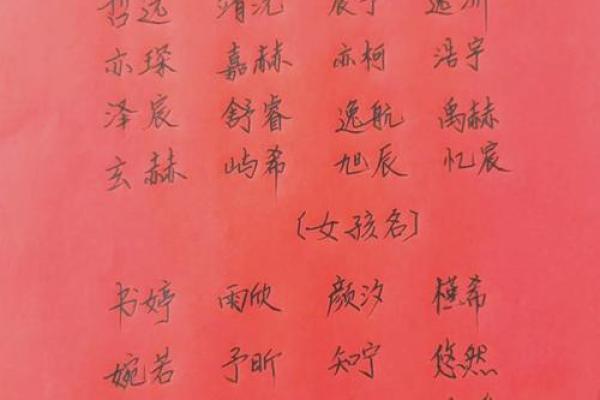 哲远 靖沅 宸宇 逸洲
亦琛 嘉赫 亦柯 浩宇
泽宸 舒睿 逸航 禹赫
玄赫 屿希 旭辰 忆宸
（女孩名）
书婷 雨欣 颜汐 槿希
婉若 予昕 知宁 悠然